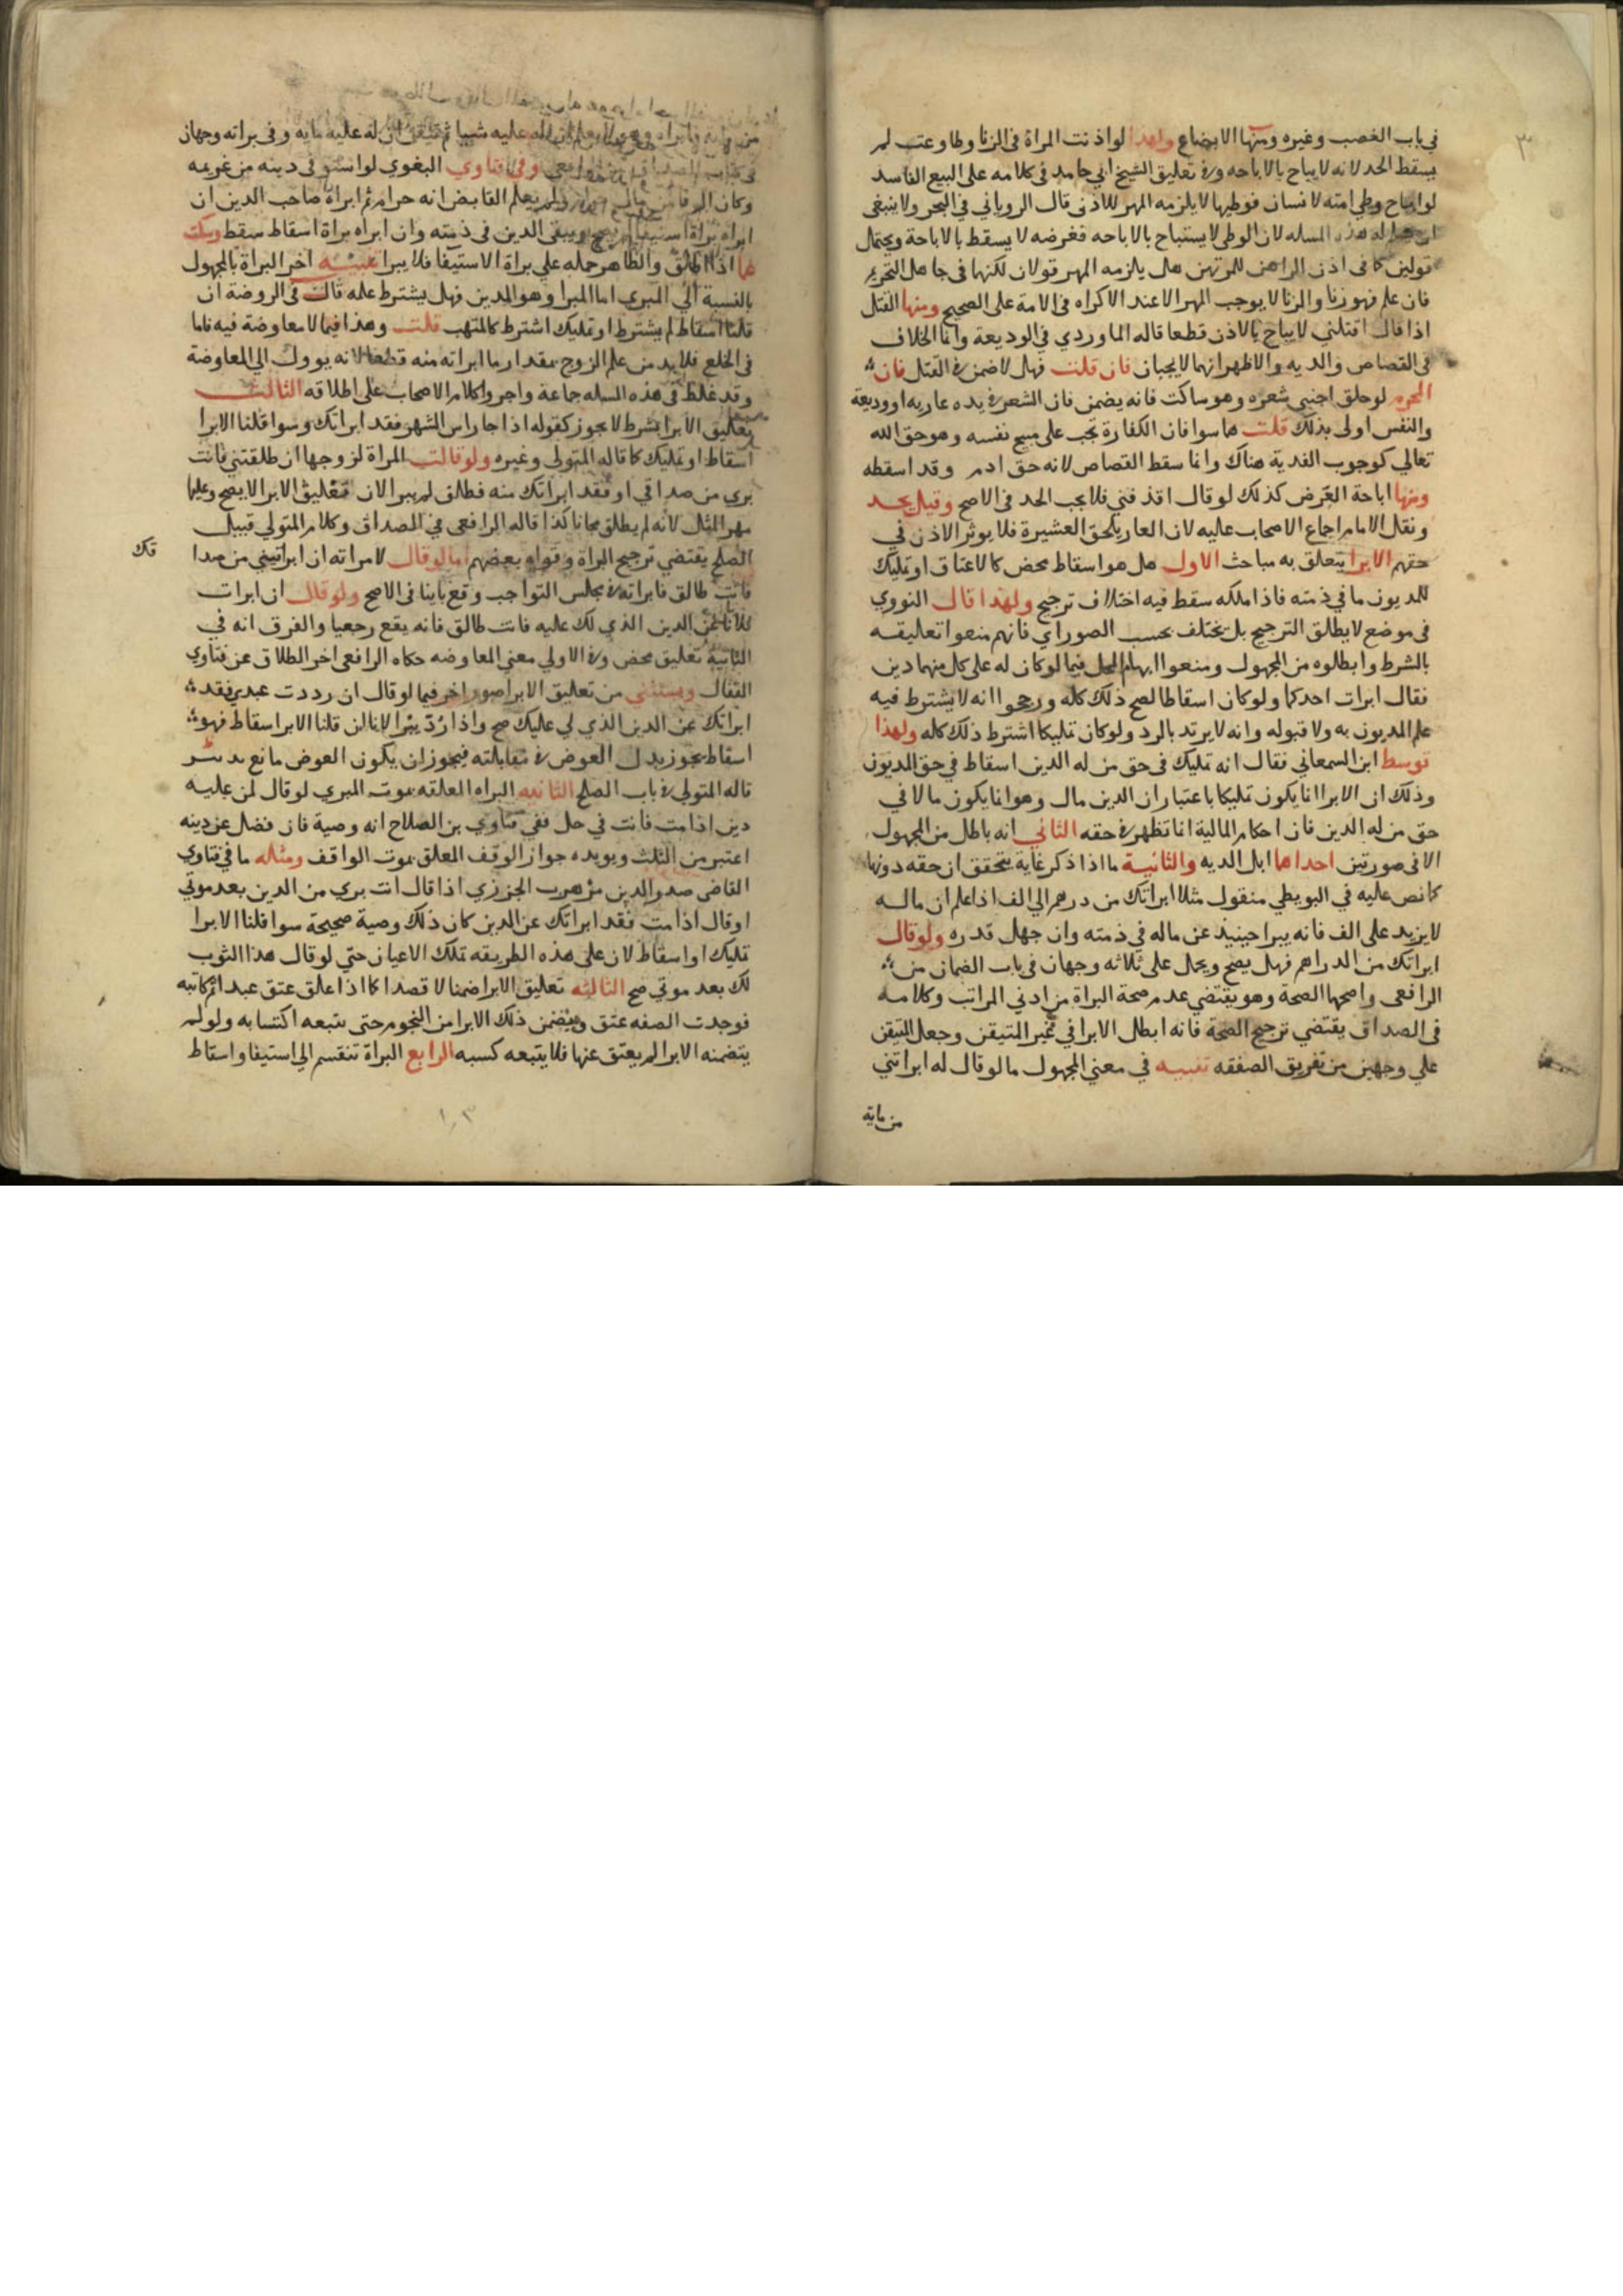 ٣
في باب الغصب وغيره ومنها الابضاع ولهذا لو اذنت المراة في الزنا وطاوعت لم
يسقط الحد لانه لا يباح بالاباحه وفي تعليق الشيخ ابي حامد في كلامه على البيع الفاسد
لو اباح وطي امته لانسان فوطيها لا يلزمه المهر للاذن قال الروياني في البحر ولا ينبغي
هذه المسله لان الوطي لا يستباح بالاباحه فعرضه لا يسقط بالاباحة ويحتمل
قولين كما في اذن الراهن للمرتهن هل يلزمه المهر قولان لكنها في جاهل التحريم
فان علم فهو زنا والزنا لا يوجب المهر الا عند الاكراه في الامة على الصحيح ومنها القتل
اذا قال اقتلني لا يباح بالاذن قطعا قاله الماوردي في الوديعة وانما الخلاف
في القصاص والديه والاظهر انهما لا يجبان فان قلت فهل لا ضمن في القتل فان
المحرم لو حلق اجنبي شعره وهو ساكت فانه يضمن فان الشعر في يده عاريه او وديعة
والنفس اولى بذلك قلت هما سوا فان الكفارة تجب على مبيح نفسه وهو حق الله
تعالي كوجوب الفدية هناك وانما سقط القصاص لانه حق ادم وقد اسقطه
ومنها اباحة العرض كذلك لو قال اقذفني فلا يجب الحد في الاصح وقيل يحد
ونقل الامام اجماع الاصحاب عليه لان العار يلحق العشيرة فلا يوثر الاذن في
حقهم الابرا يتعلق به مباحث الاول هل هو اسقاط محض كالاعتاق او تمليك
للمديون ما في ذمته فاذا ملكه سقط فيه اختلاف ترجيح ولهذا قال النووي
في موضع لا يطلق الترجيح بل يختلف بحسب الصور اي فانهم منعوا تعليقه
بالشرط وابطلوه من المجهول ومنعوا ابهام المحل فيما لو كان له على كل منهما دين
فقال ابرات احدكما ولو كان اسقاطا لصح ذلك كله ورجحوا انه لا يشترط فيه
علم المديون به ولا قبوله وانه لا يرتد بالرد ولو كان تمليكا اشترط ذلك كله ولهذا
توسط ابن السمعاني فقال انه تمليك في حق من له الدين اسقاط في حق المديون
وذلك ان الابرا انما يكون تمليكا باعتبار ان الدين مال وهو انما يكون مالا في
حق من له الدين فان احكام المالية انما تظهر في حقه الثاني انه باطل من المجهول
الا في صورتين احداهما ابل الديه والثانية ما اذا ذكر غاية يتحقق ان حقه دونها
كما نص عليه في البويطي منقول مثلا ابراتك من درهم الي الف اذا علم ان ماله
لا يزيد على الف فانه يبرا حينيذ عن ماله في ذمته وان جهل قدره ولو قال
ابراتك من الدراهم فهل يصح ويحمل على ثلاثه وجهان في باب الضمان من
الرافعي واصحها الصحة وهو يقتضي عدم صحة البراة من ادني المراتب وكلامه
في الصداق يقتضي ترجيح الصحة فانه ابطل الابرا في غير المتيقن وجعل المتيقن
علي وجهين من تفريق الصفقه تنبيه في معني المجهول ما لو قال له ابراتني
من ماية
من ماية فابراه وهو لا يعلم ان له عليه شييا ثم تيقن ان له عليه مايه وفي براته وجهان
وفي فتاوي البغوي لو استوفى دينه من غريمه
وكان ولم يعلم القابض انه حرام ثم ابراه صاحب الدين ان
ابراه براة استيفا لم يصح ويبقى الدين في ذمته وان ابراه براة اسقاط سقط وسكت
عما اذا اطلق والظاهر حمله علي براة الاستيفا فلا يبرا تنبيه اخر البراة بالمجهول
بالنسبة الي المبري اما المبرا وهو المدين فهل يشترط علمه قال في الروضة ان
قلنا اسقاط لم يشترط او تمليك اشترط كالمتهب قلت وهذا فيما لا معاوضة فيه فاما
في الخلع فلا بد من علم الزوج بمقدار ما ابراته منه قطعا لانه يوول الي المعاوضة
وقد غلط في هذه المسله جماعة واجروا كلام الاصحاب على اطلاقه الثالث
تعليق الابرا بشرط لا يجوز كقوله اذا جا راس الشهر فقد ابراتك وسوا قلنا الابرا
اسقاط او تمليك كما قاله المتولي وغيره ولو قالت المراة لزوجها ان طلقتني فانت
بري من صداقي او فقد ابراتك منه فطلق لم يبرا لان تعليق الابرا لا يصح وعليها
مهر المثل لانه لم يطلق مجانا كذا قاله الرافعي في الصداق وكلام المتولي قبيل
الصلح يقتضي ترجيح البراة وقواه بعضهم اما لو قال لامراته ان ابراتيني من صدا
قك
فانت طالق فابراته في مجلس التواجب وقع باينا في الاصح ولو قال ان ابرات
فلانا عن الدين الذي لك عليه فانت طالق فانه يقع رجعيا والفرق انه في
الثانية تعليق محض وفي الاولي معنى المعاوضه حكاه الرافعي اخر الطلاق عن فتاوي
القفال ويستثني من تعليق الابرا صور احدها لو قال ان رددت عبدي فقد
ابراتك عن الدين الذي لي عليك صح واذا رد يبرا لانا ان قلنا الابرا اسقاط فهو
اسقاط يجوز بدل العوض في مقابلته فيجوز ان يكون العوض مانع
قاله المتولي في باب الصلح الثانيه البراه المعلقه بموت المبري لو قال لمن عليه
دين اذا مت فانت في حل ففي فتاوي بن الصلاح انه وصية فان فضل عن دينه
اعتبر من الثلث ويويده جواز الوقف المعلق بموت الواقف ومثله ما في فتاوي
القاضي صدر الدين موهوب الجزري اذا قال انت بري من الدين بعد موتي
او قال اذا مت فقد ابراتك عن الدين كان ذلك وصية صحيحة سوا قلنا الابرا
تمليك او اسقاط لان على هذه الطريقه تملك الاعيان حتي لو قال هذا الثوب
لك بعد موتي صح الثالثه تعليق الابرا ضمنا لا قصدا كما اذا علق عتق عبد ثم كاتبه
فوجدت الصفه عتق وتضمن ذلك الابرا من النجوم حتى يتبعه اكتسابه ولو لم
يتضمنه الابرا لم يعتق عنها فلا يتبعه كسبه الرابع البراة تنقسم الي استيفا واسقاط